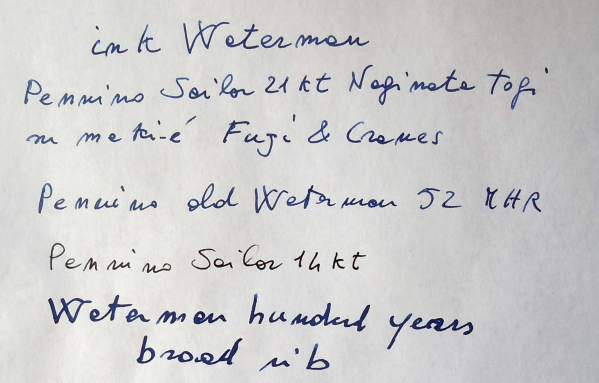 ink Waterman
Pennino Sailor 21 kt Naginata Togi
su maki-é Fugi & Cranes
Pennino old Waterman 52 MHR
Pennino Sailor 14 kt
Waterman hundred years
broad nib